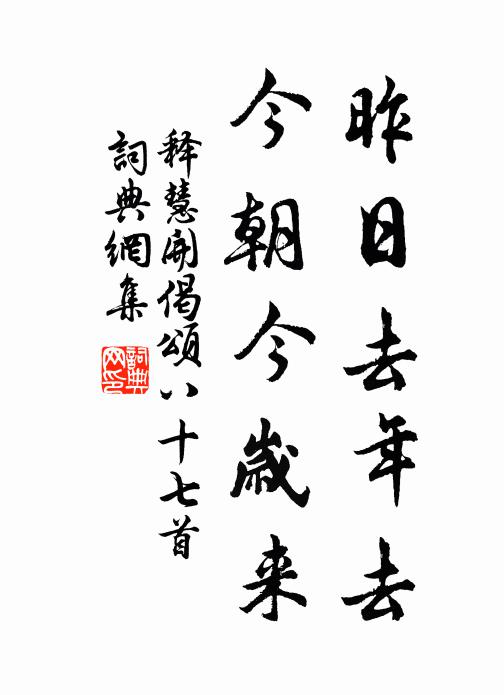 昨日去年去
今朝今歲来
释慧開偈頌八十七首
詞典網集
詞典網印